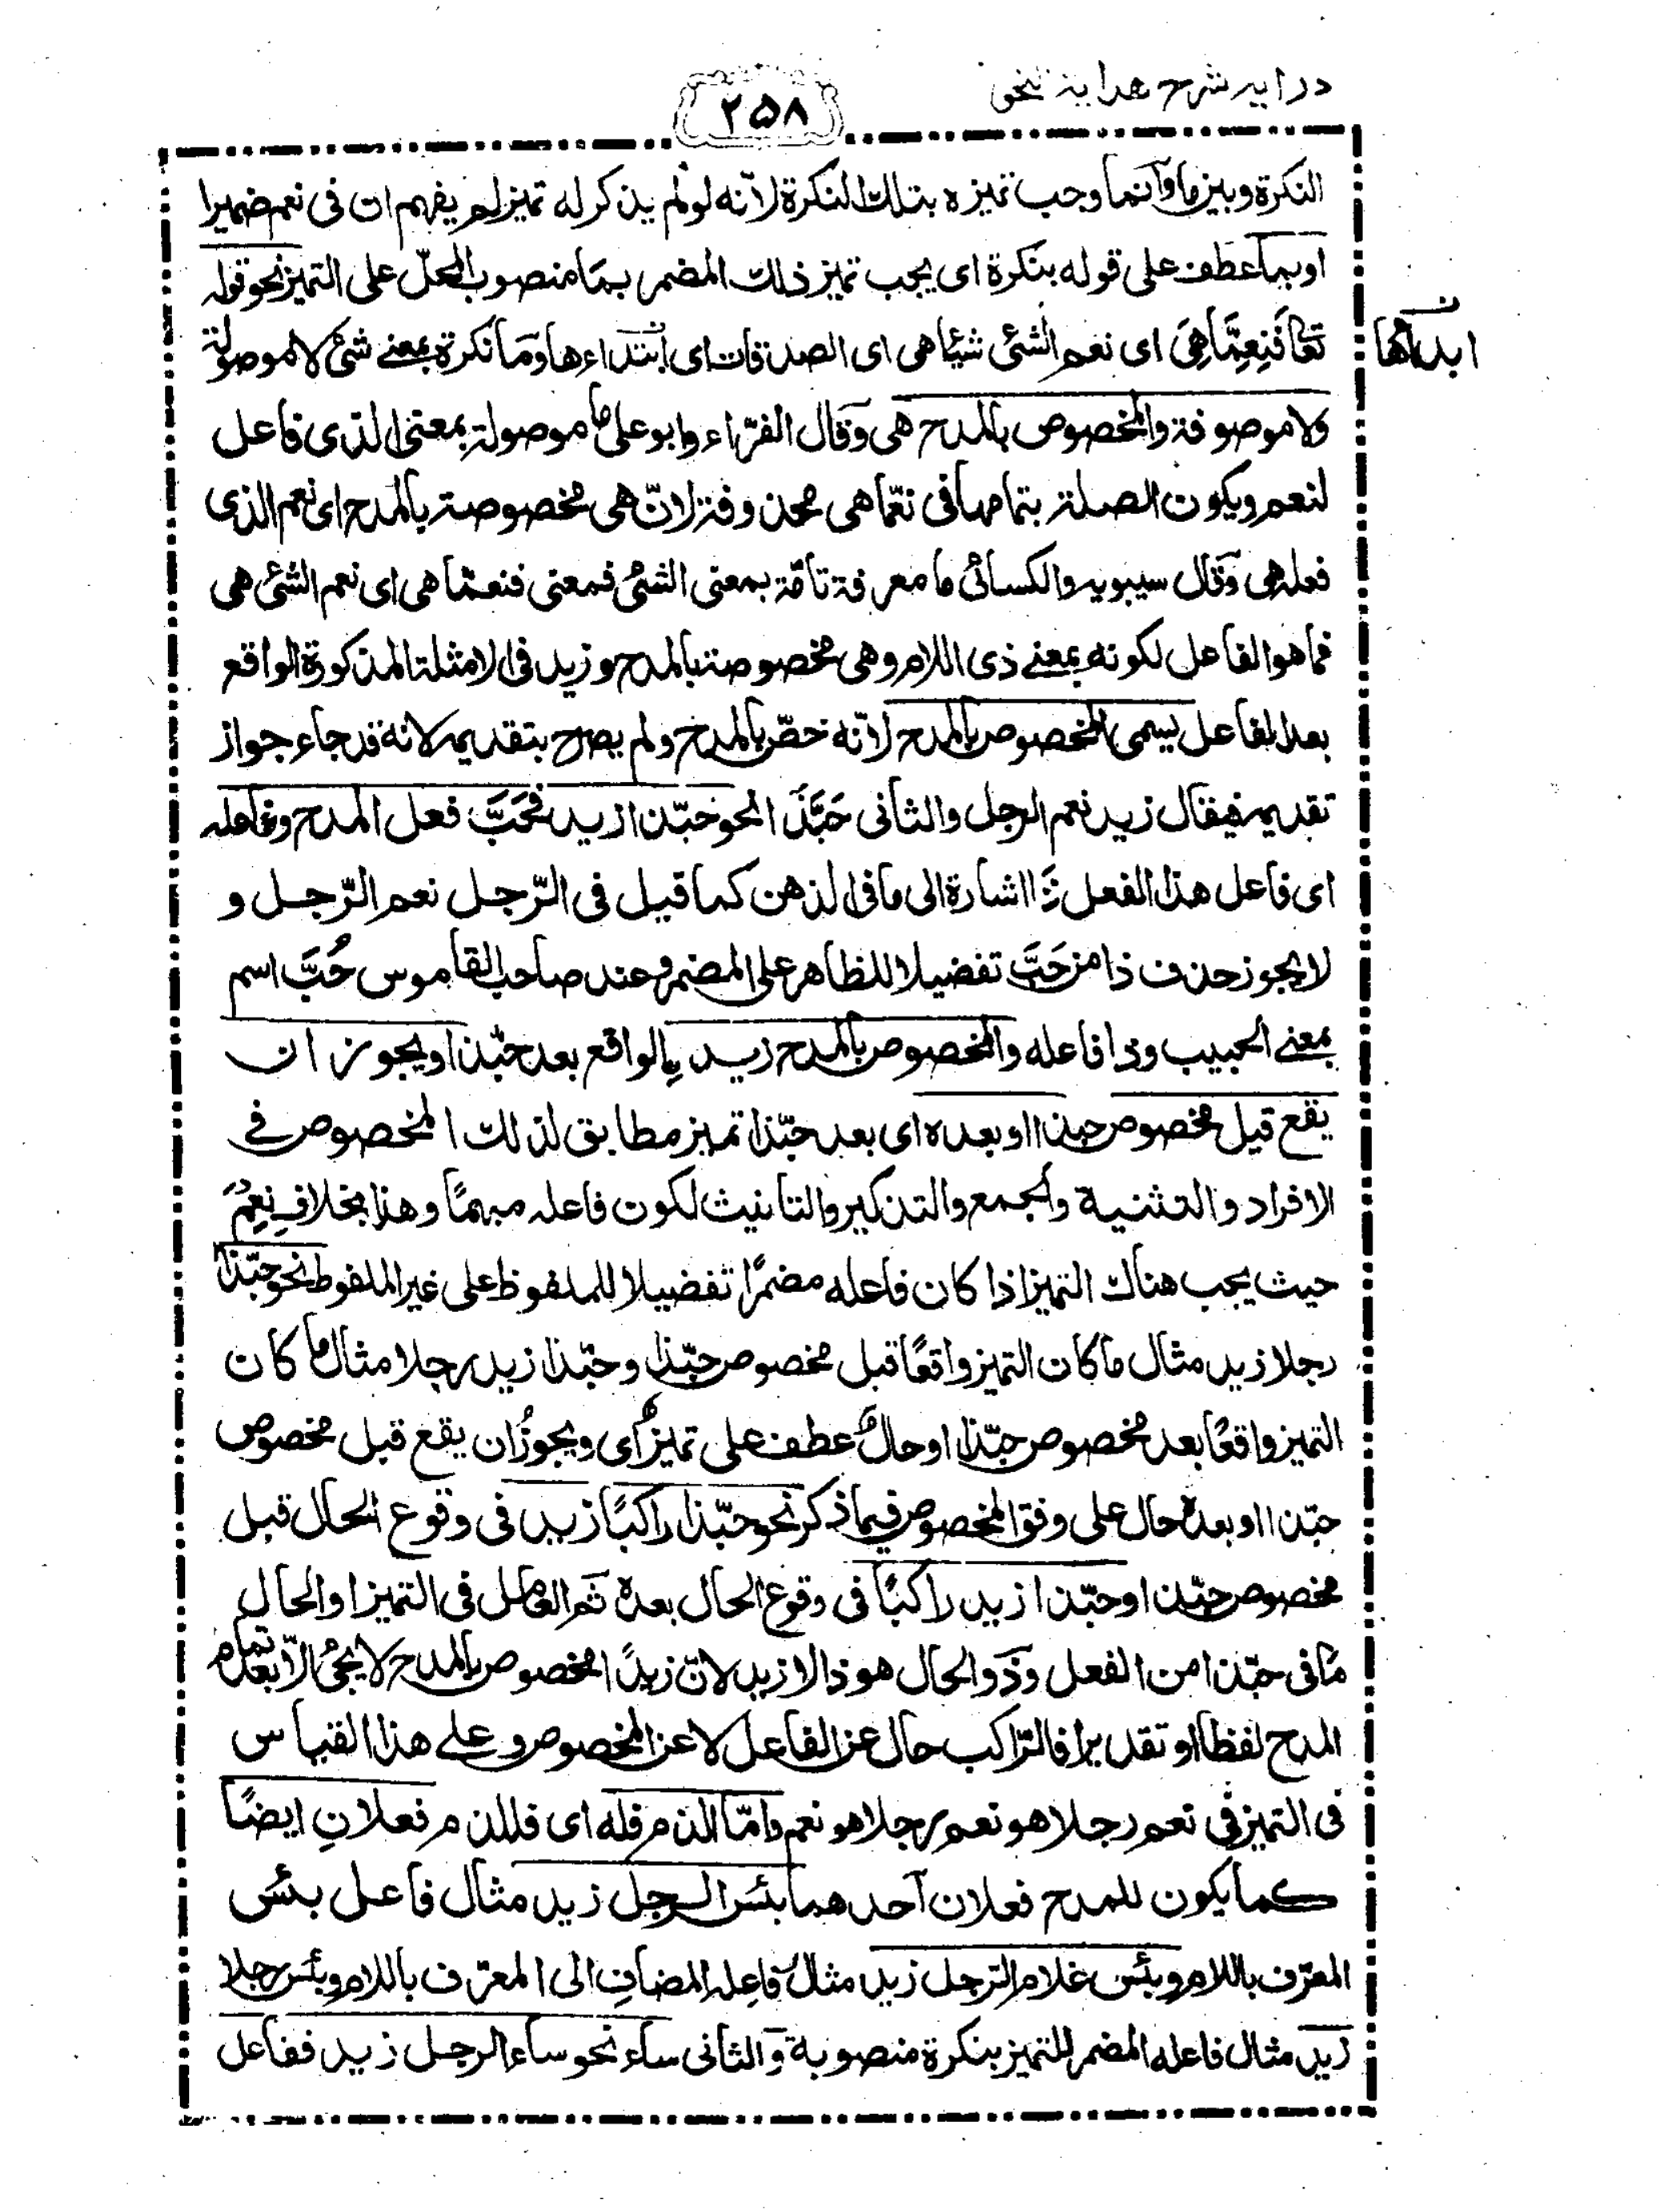 درايه شرح هداية النحو
٢٥٨
النكرة وبين ما وآنما وجب تميزه بتلك النكرة لانّه لو لم يذكر له تميز لم يفهم ان فى نعم ضميرا
او بما عطف على قوله بنكرة اى يجب تميز ذلك المضمر بما منصوب المحلّ على التميز نحو قوله
تعا فَنِعِمَّا هِيَ اى نعم الشئ شيئا هى اى الصدقات اى ابتداءها وما نكرة بمعنے شئ لا موصولة
ابداءها
ولا موصوفة والمخصوص بالمدح هى وقال الفرّاء وابو على ما موصولة بمعنى الذى فاعل
لنعم ويكون الصلة بتمامها فى نعّما هى محذوفة لانّ هى مخصوصة بالمدح اى نعم الذى
فعله هى وقال سيبويه والكسائى ما معرفة تامّة بمعنى الشئ فمعنى فنعمّا هى اى نعم الشئ هى
فما هو الفاعل لكونه بمعنے ذى اللام وهى مخصوصة بالمدح وزيد فى الامثلة المذكورة الواقع
بعد الفاعل يسمى المخصوص بالمدح لانّه خصّ بالمدح ولم يصرح بتقديمه لانه قد جاء جواز
تقديمه فيقال زيد نعم الرجل والثانى حَبَّذَا نحو حبّذا زيد فحَبَّ فعل المدح وفاعله
اى فاعل هذا الفعل ذَا اشارة الى ما فى الذهن كما قيل فى الرّجل نعم الرّجل و
لا يجوز حذف ذا من حَبَّ تفضيلا للظاهر على المضمر وعند صاحب القاموس حُبَّ اسم
بمعنے الحبيب وذا فاعله والمخصوص بالمدح زيد بالواقع بعد حبّذا ويجوز ان
يقع قبل مخصوص حبذا او بعده اى بعد حبّذا تميز مطابق لذلك المخصوص فے
الافراد والتثنية والجمع والتذكير والتانيث لكون فاعله مبهمًا وهذا بخلافِ نِعِمَ
حيث يجب هناك التميز اذا كان فاعله مضمرًا تفضيلا للملفوظ على غير الملفوظ نحو حبّذا
رجلا زيد مثال ما كان التميز واقعًا قبل مخصوص حبّذا وحبّذا زيد رجلا مثال ما كان
التميز واقعًا بعد مخصوص حبّذا او حالٌ عطف على تميزٌ اى ويجوزُ ان يقع قبل مخصوص
حبّذا او بعدهٗ حال على وفق المخصوص فيما ذكر نحو حبّذا راكبًا زيد فى وقوع الحال قبل
مخصوص حبّذا وحبّذا زيد راكبًا فى وقوع الحال بعدهٗ ثم العامل فى التميز او الحال
ما فى حبّذا من الفعل وذو الحال هو ذا لا زيد لانّ زيدًا مخصوص بالمدح لا يجئ الّا بعد تمام
المدح لفظا او تقديرا فالرّاكب حال عن الفاعل لا عن المخصوص وعلے هذا القياس
فى التميز فى نعم رجلا هو نعم رجلا هو نعم وامّا الذم فله اى فللذم فعلانِ ايضًا
كما يكون للمدح فعلان آحدهما بئس الرجل زيد مثال فاعل بئس
المعرّف باللام وبئس غلام الرّجل زيد مثال فاعله المضاف الى المعرّف باللام وبئس رجلا
زيد مثال فاعله المضمر للتميز بنكرة منصوبة والثانى ساء نحو ساء الرجل زيد ففاعل